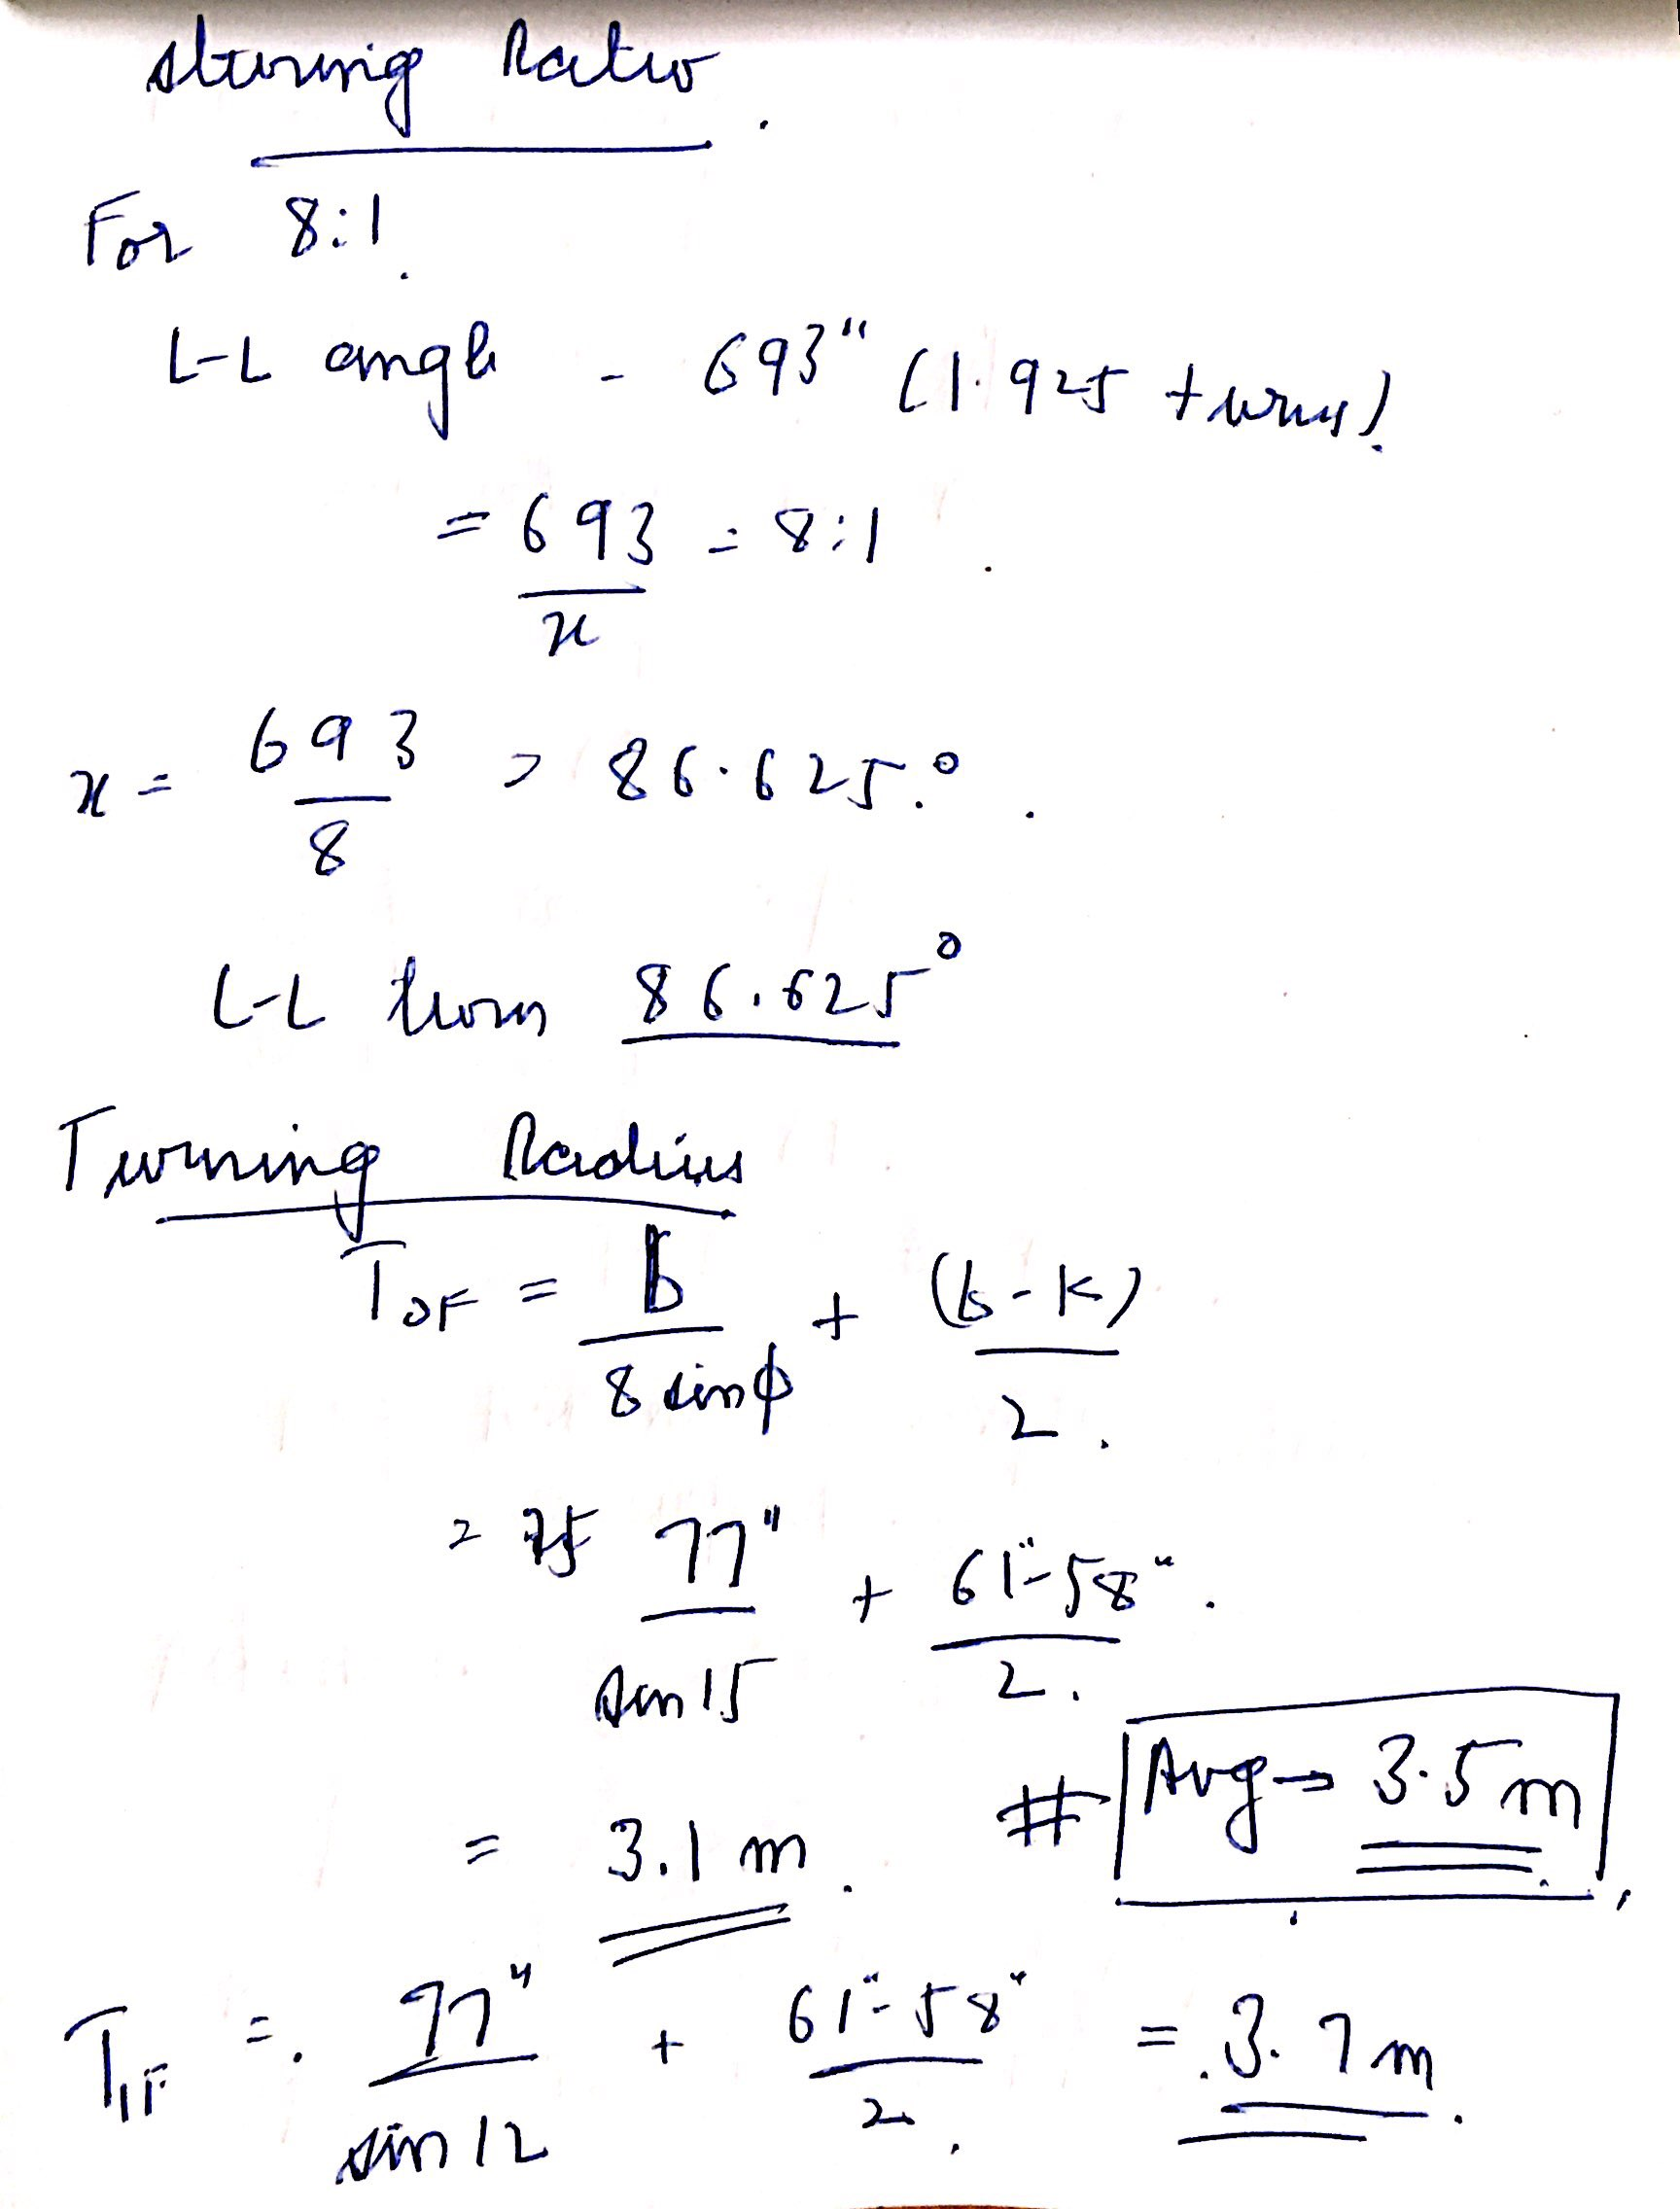 Steering Ratio.
For 8:1.
L-L angle - 693" (1.925 turns).
= 693/x = 8:1.
x = 693/8 = 86.625.°.
L-L turn 86.625°
Turning Radius
T_OF = b/8 sinϕ + (b-k)/2.
= 77"/sin 15 + 61"-58"/2.
= 3.1 m.
# Avg → 3.5 m.
T_IF = 77"/sin 12 + 61"-58"/2. = 3.7 m.